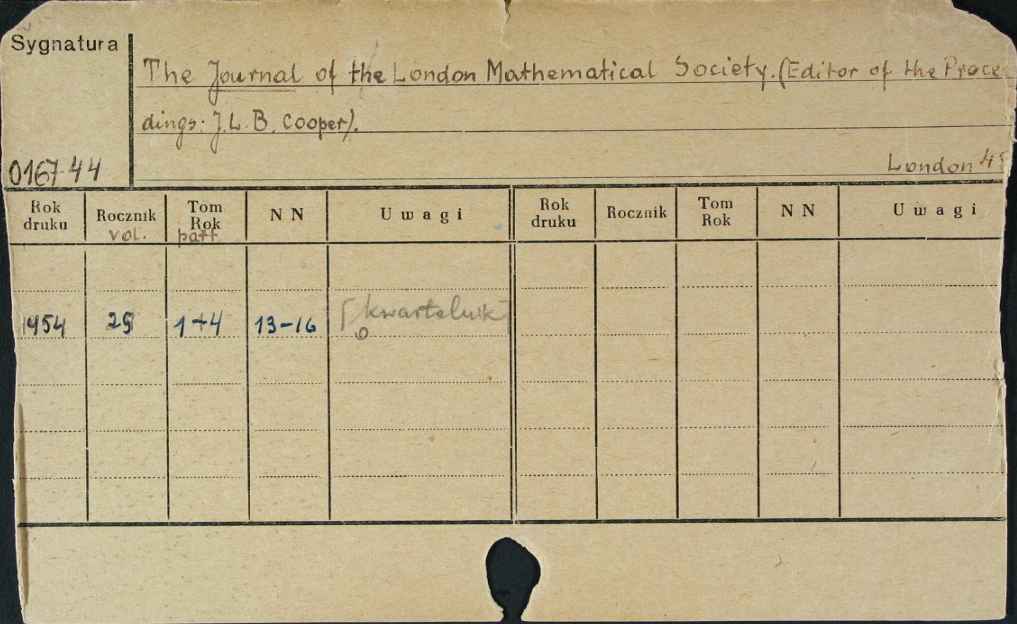 Sygnatura
The Journal of the London Mathematical Society. (Editor of the Procee-
dings: J.L.B. Cooper).
0167-44
London 45
Rok druku Rocznik vol. Tom Rok part N N Uwagi Rok druku Rocznik Tom Rok N N Uwagi
1954 29 1-4 13-16 [kwartalnik]